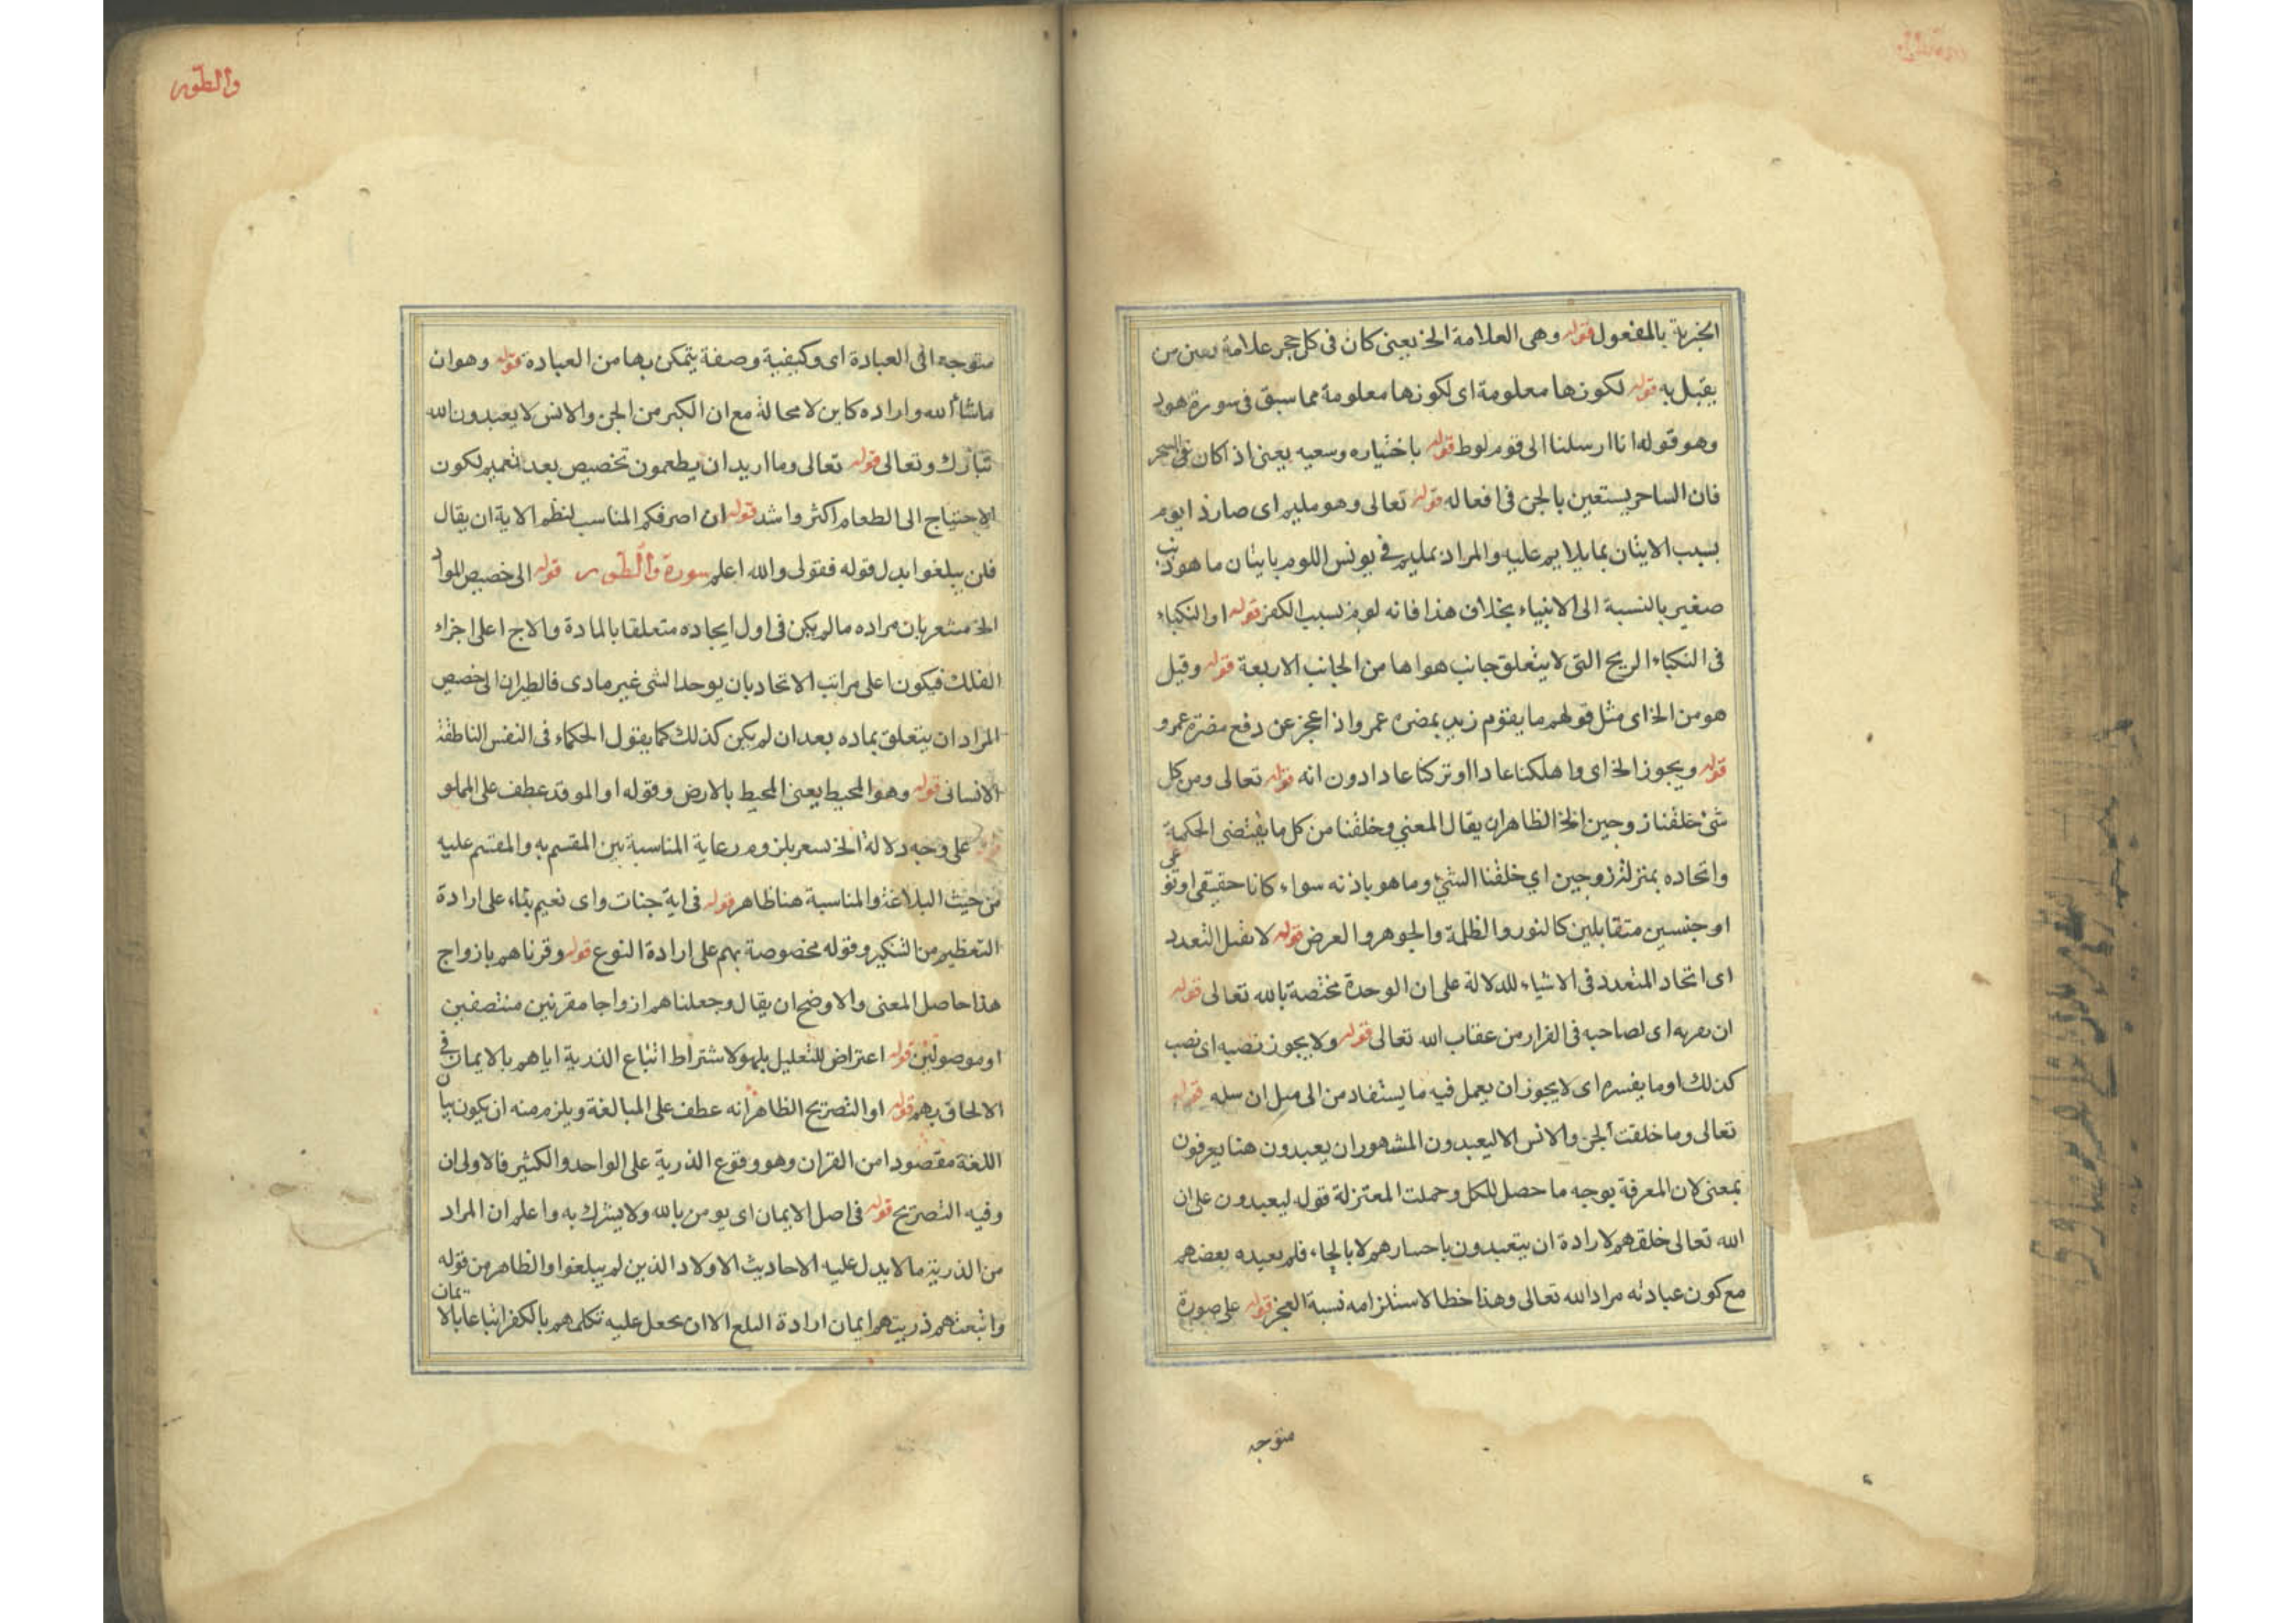 الخزية بالمفعول قوله وهى العلامة الخ يعنى كان فى كل حجر علامة من
يقبل به قوله لكونها معلومة اى لكونها معلومة مما سبق فى سورة هود
وهو قوله انا ارسلنا الى قوم لوط قوله باختياره وسعيه يعنى اذا كان فى السحر
فان الساحر يستعين بالجن فى افعاله قوله تعالى وهو مليم اى صار ذا يوم
بسبب الاتيان بما يلايم عليه والمراد بمليم فى يونس اللوم باتيان ما هو ذنب
صغير بالنسبة الى الانبياء بخلاف هذا فانه لوم بسبب الكفر قوله او النكباء
فى النكباء الريح التى لا يتعلق جانب هواها من الجانب الاربعة قوله وقيل
هو من الخ اى مثل قولهم ما يقوم زيد بمضره عمرو اذا عجز عن دفع مضرة عمرو
قوله ويجوز الخ اى واهلكنا عادا او تركنا عادا دون انه قوله تعالى ومن كل
شئ خلقنا زوجين الخ الظاهر ان يقال المعنى وخلقنا من كل ما يقتضى الحكمة
واتحاده بمنزلة زوجين اي خلقنا الشئ وما هو باذنه سواء كانا حقيقى او نوعى
او جنسين متقابلين كالنور والظلمة والجوهر والعرض قوله لا نقبل التعدد
اى اتحاد المتعدد فى الاشياء للدلالة على ان الوحدة مختصة بالله تعالى قوله
ان اى لصاحبه فى الفرار من عقاب الله تعالى قوله ولا يجوز نصبه اى نصب
كذلك او ما يفسره اى لا يجوز ان يعمل فيه ما يستفاد من الى قوله
تعالى وما خلقت الجن والانس الا ليعبدون المشهور ان يعبدون هنا يعرفون
بمعنى لان المعرفة بوجه ما حصل للكل وحملت المعتزلة قوله ليعبدون على ان
الله تعالى خلقهم لارادة ان يتعبدون لا بالجاء فلم يعبده بعضهم
مع كون عبادته مراد الله تعالى وهذا خطا لاستلزامه نسبة العجز قوله على صورة
متوجه
والطور
متوجه الى العبادة اى وكيفية وصفة يتمكن بها من العبادة قوله وهو ان
ما شاء الله واراده كاين لا محالة مع ان الكبر من الجن والانس لا يعبدون الله
تبارك وتعالى قوله تعالى وما اريد ان يطعمون تخصيص بعد تعميم لكون
الاحتياج الى الطعام اكثر واشد قوله ان اصرفكم المناسب لنظم الاية ان يقال
فلن يبلغوا بدل قوله فقولى والله اعلم سورة والطور قوله الى خصيص المواد
الخ مشعر بان مراده ما لم يكن فى اول ايجاده متعلقا بالمادة والاج اعلى اجزاء
الفلك فيكون اعلى مراتب الاتحاد بان يوحد الشى غير مادى فالطيران الى خصيص
المراد ان يتعلق بماده بعد ان لم يكن كذلك كما يقول الحكماء فى النفس الناطقة
الانسانى قوله وهو المحيط يعنى المحيط بالارض وقوله او الموقد عطف على المملو
قوله على وجه دلالة الخ بلزوم رعاية المناسبة بين المقسم به والمقسم عليه
من حيث البلاغة والمناسبة هنا ظاهر قوله فى اية جنات واى نعيم بناء على ارادة
التعظيم من التنكير وقوله مخصوصة بهم على ارادة النوع قوله وقرناهم بازواج
هذا حاصل المعنى والاوضح ان يقال وجعلناهم ازواجا مقرنين منتصفين
او موصولين قوله اعتراض للتعليل بلهو لاشتراط اتباع الذرية اياهم بالايمان فى
الالحاق بهم قوله او التصريح الظاهر انه عطف على المبالغة ويلزم منه ان يكون بيان
اللغة مقصودا من القران وهو وقوع الذرية على الواحد والكثير فالاولى ان
وفيه التصريح قوله فى اصل الايمان اى يومن بالله ولا يشرك به واعلم ان المراد
من الذرية ما لا يدل عليه الاحاديث الاولاد الذين لم يبلغوا والظاهر من قوله
واتبعتهم ذريتهم ايمان ارادة الا ان يحعل عليه تكلمهم بالكفر اتباعا بالايمان